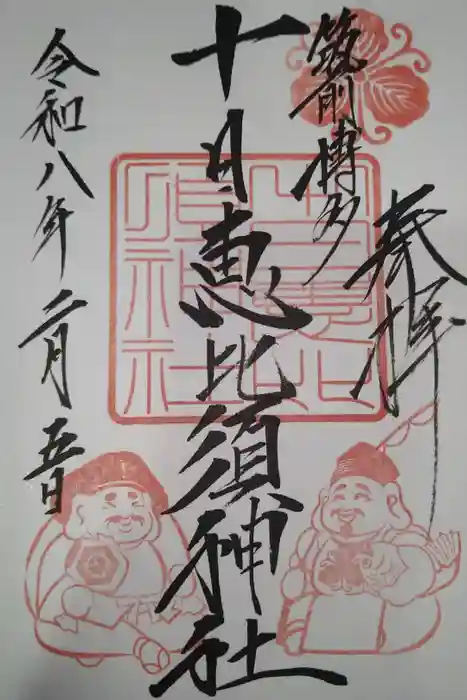 奉拝
筑前博多
十日恵比須神社
令和八年二月五日
十日恵比須神社